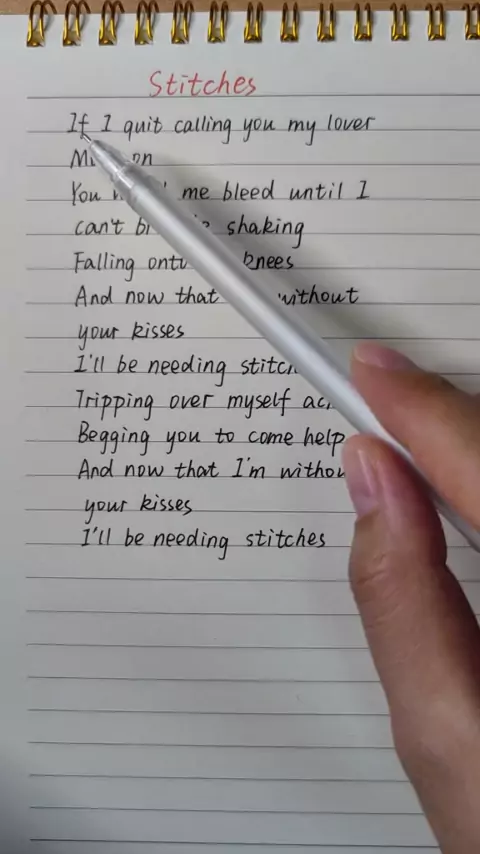 Stitches
If I quit calling you my lover
on
You me bleed until I
can't shaking
Falling knees
And now that without
your kisses
I'll be needing
Tripping over myself
Begging you to come help
And now that I'm
your kisses
I'll be needing stitches